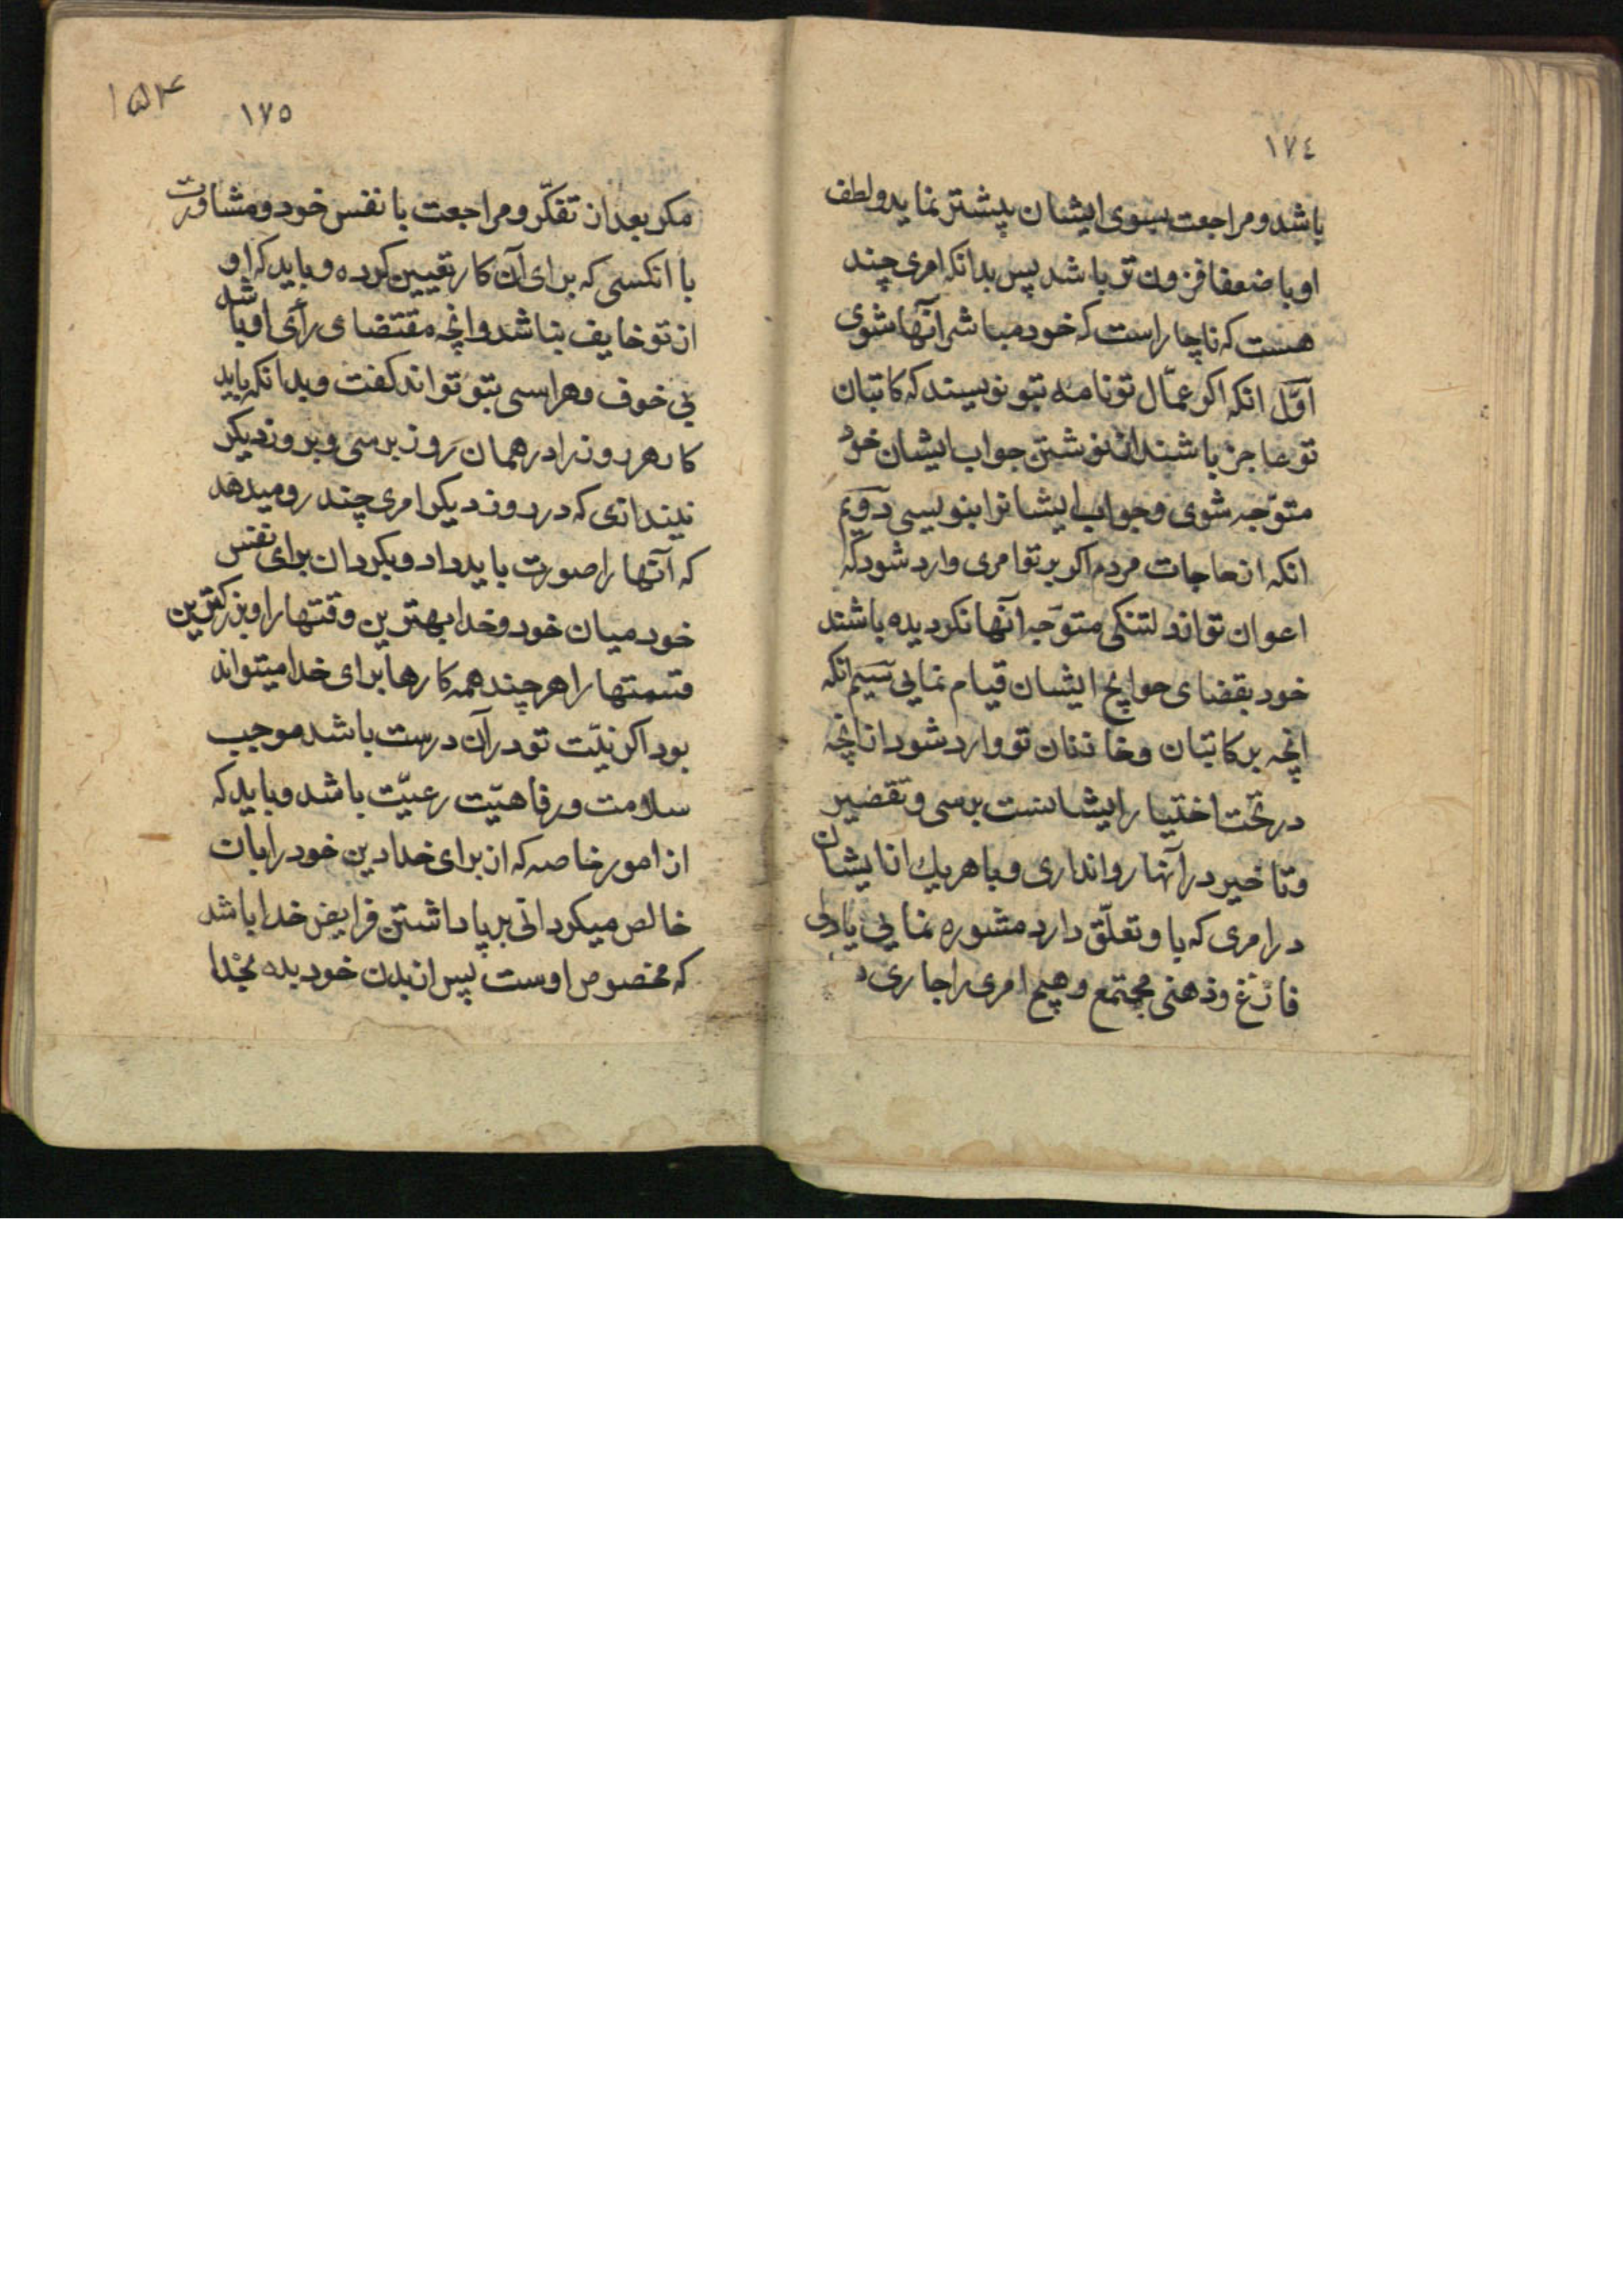 ١٧٤
باشد و مراجعت بسوی ایشان پیشتر نماید و لطف
او با ضعفا فزون تر باشد پس بدانکه امری چند
هست که ناچار است که خود مباشر آنها شوی
اوّل انکه اکر عمّال تو نامه بتو نویسند که کاتبان
تو عاجز باشند از نوشتن جواب ایشان خود
متوّجه شوی و جواب ایشانرا بنویسی دویّم
انکه از حاجات مردم اکر بر تو امری وارد شود که
اعوان تو از دلتنکی متوّجه آنها نکردیده باشند
خود بقضای حوایج ایشان قیام نمایی سیّم انکه
انچه بر کاتبان و خازنان تو وارد شود از انچه
در تحت اختیار ایشانست برسی و تقصیر
و تاخیر در آنها روا نداری و با هر یك از ایشان
در امری که باو تعلّق دارد مشوره نمایی با دلی
فارغ و ذهنی مجتمع و هیچ امری را جاری
١٥٤
١٧٥
مکر بعد از تفکّر و مراجعت با نفس خود و مشاورت
با انکسی که برای آن کار تعیین کرده و باید که او
از تو خایف نباشد و انچه مقتضای رأی او باشد
بی خوف و هراسی بتو تواند کفت و بدانکه باید
کار هر روز را در همان روز برسی و بروز دیکر
نیندازی که در روز دیکر امری چند رو میدهد
که آنها را صورت باید داد و بکردان برای نفس
خود میان خود و خدا بهترین وقتها را و بزرکترین
قسمتها را هر چند همه کارها برای خدا میتواند
بود اکر نیّت تو در آن درست باشد موجب
سلامت و رفاهیّت رعیّت باشد و باید که
از امور خاصه که از برای خدا دین خود را بان
خالص میکردانی بر پا داشتن فرایض خدا باشد
که مخصوص اوست پس از بدن خود بده بخدا